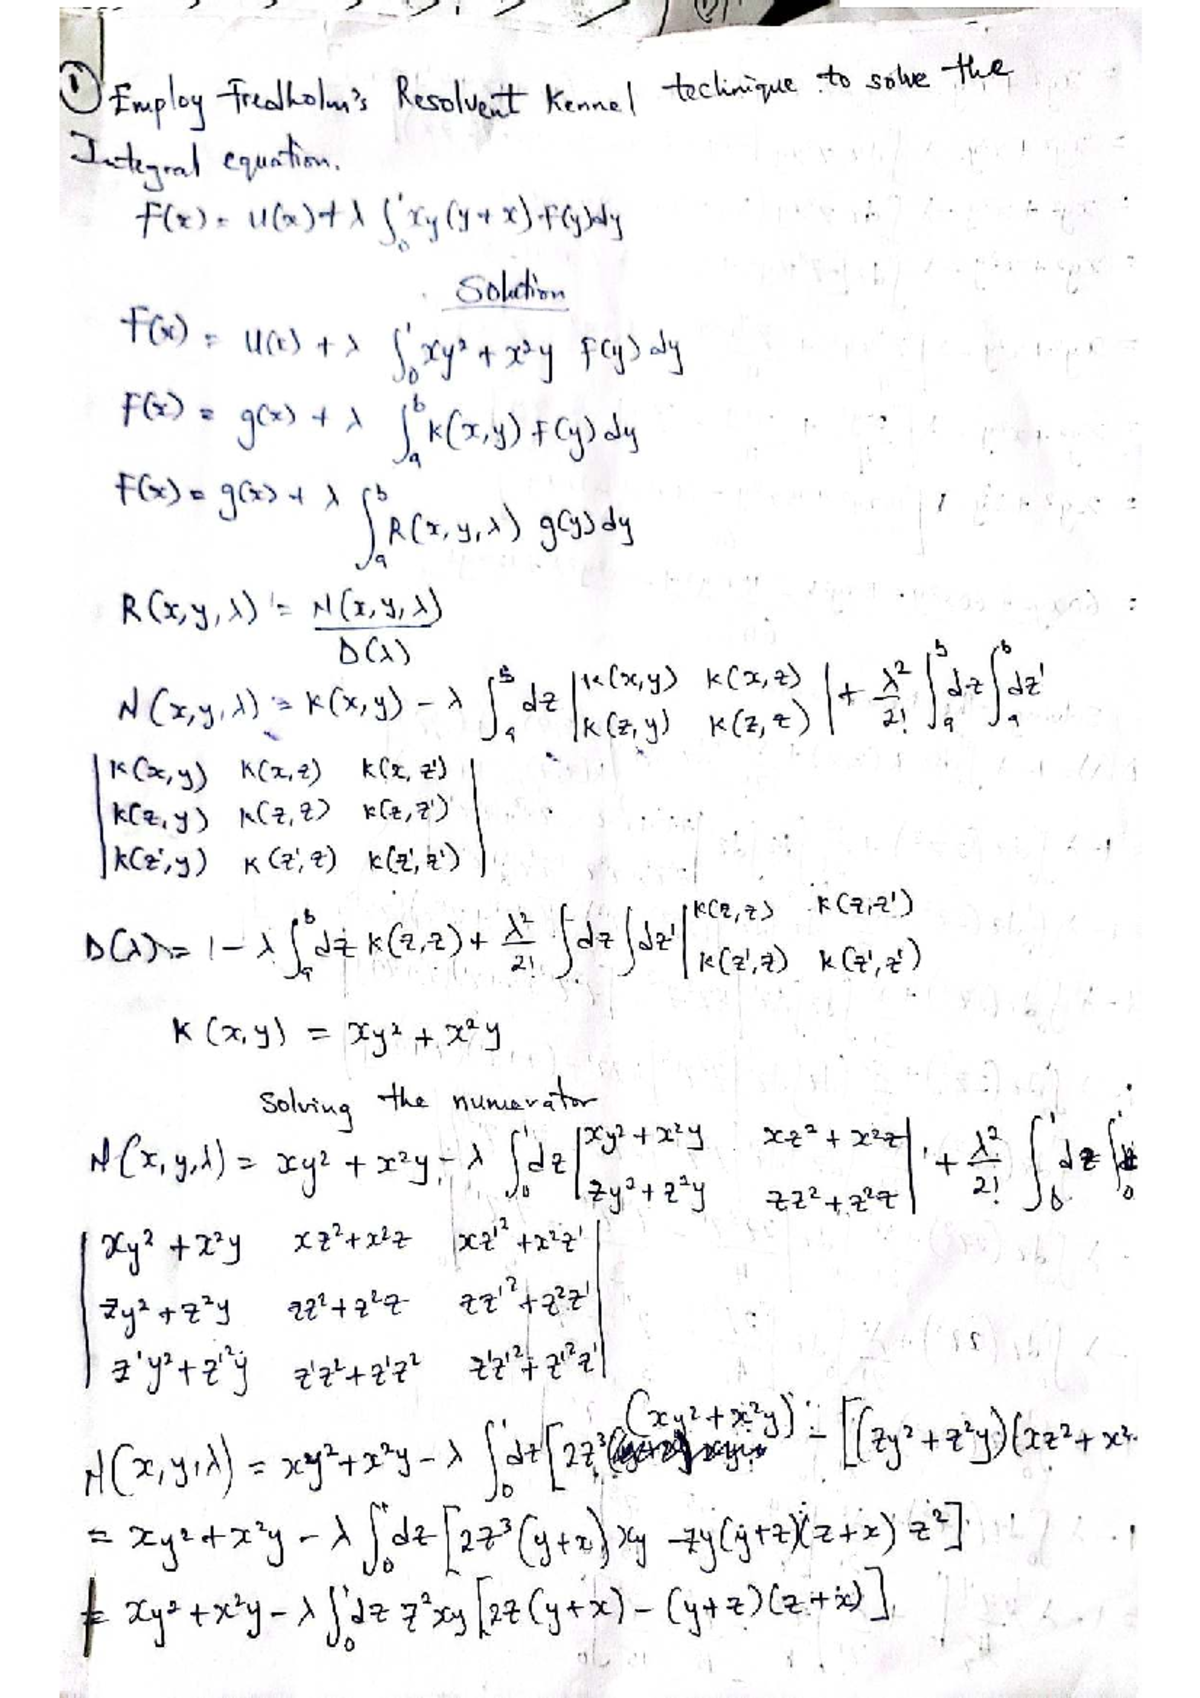 ① Employ Fredholm's Resolvent Kennel technique to solve the
Integral equation.
F(x) = U(x) + λ ∫₀¹ xy(y+x) F(y)dy
Solution
F(x) = U(x) + λ ∫₀¹ xy² + x²y F(y) dy
F(x) = g(x) + λ ∫ₐᵇ K(x,y) F(y) dy
F(x) = g(x) + λ ∫ₐᵇ R(x,y,λ) g(y) dy
R(x,y,λ) = N(x,y,λ)
D(λ)
N(x,y,λ) = K(x,y) - λ ∫ₐᵇ dz |K(x,y) K(x,z)| + λ²/2! ∫ₐᵇ dz ∫ₐᵇ dz'
|K(z,y) K(z,z)|
|K(x,y) K(x,z) K(x,z')|
|K(z,y) K(z,z) K(z,z')|
|K(z',y) K(z',z) K(z',z')|
D(λ) = 1 - λ ∫ₐᵇ dz K(z,z) + λ²/2! ∫dz ∫dz' |K(z,z) K(z,z')
|K(z',z) K(z',z')
K(x,y) = xy² + x²y
Solving the numerator
N(x,y,λ) = xy² + x²y - λ ∫₀¹ dz |xy² + x²y xz² + x²z| + λ²/2! ∫₀¹ dz ∫₀
|zy² + z²y zz² + z²z|
|xy² + x²y xz² + x²z xz'² + x²z'|
|zy² + z²y zz² + z²z zz'² + z²z'|
|z'y² + z'²y z'z² + z'z² z'z'² + z'²z'|
N(x,y,λ) = xy² + x²y - λ ∫₀¹ dz [2z³ (xy² + x²y) - [(zy² + z²y)(xz² + x²
= xy² + x²y - λ ∫₀¹ dz [2z³(y+x) xy - zy(y+z)(z+x) z²]
= xy² + x²y - λ ∫₀¹ dz z²xy [2z(y+x) - (y+z)(z+x)]